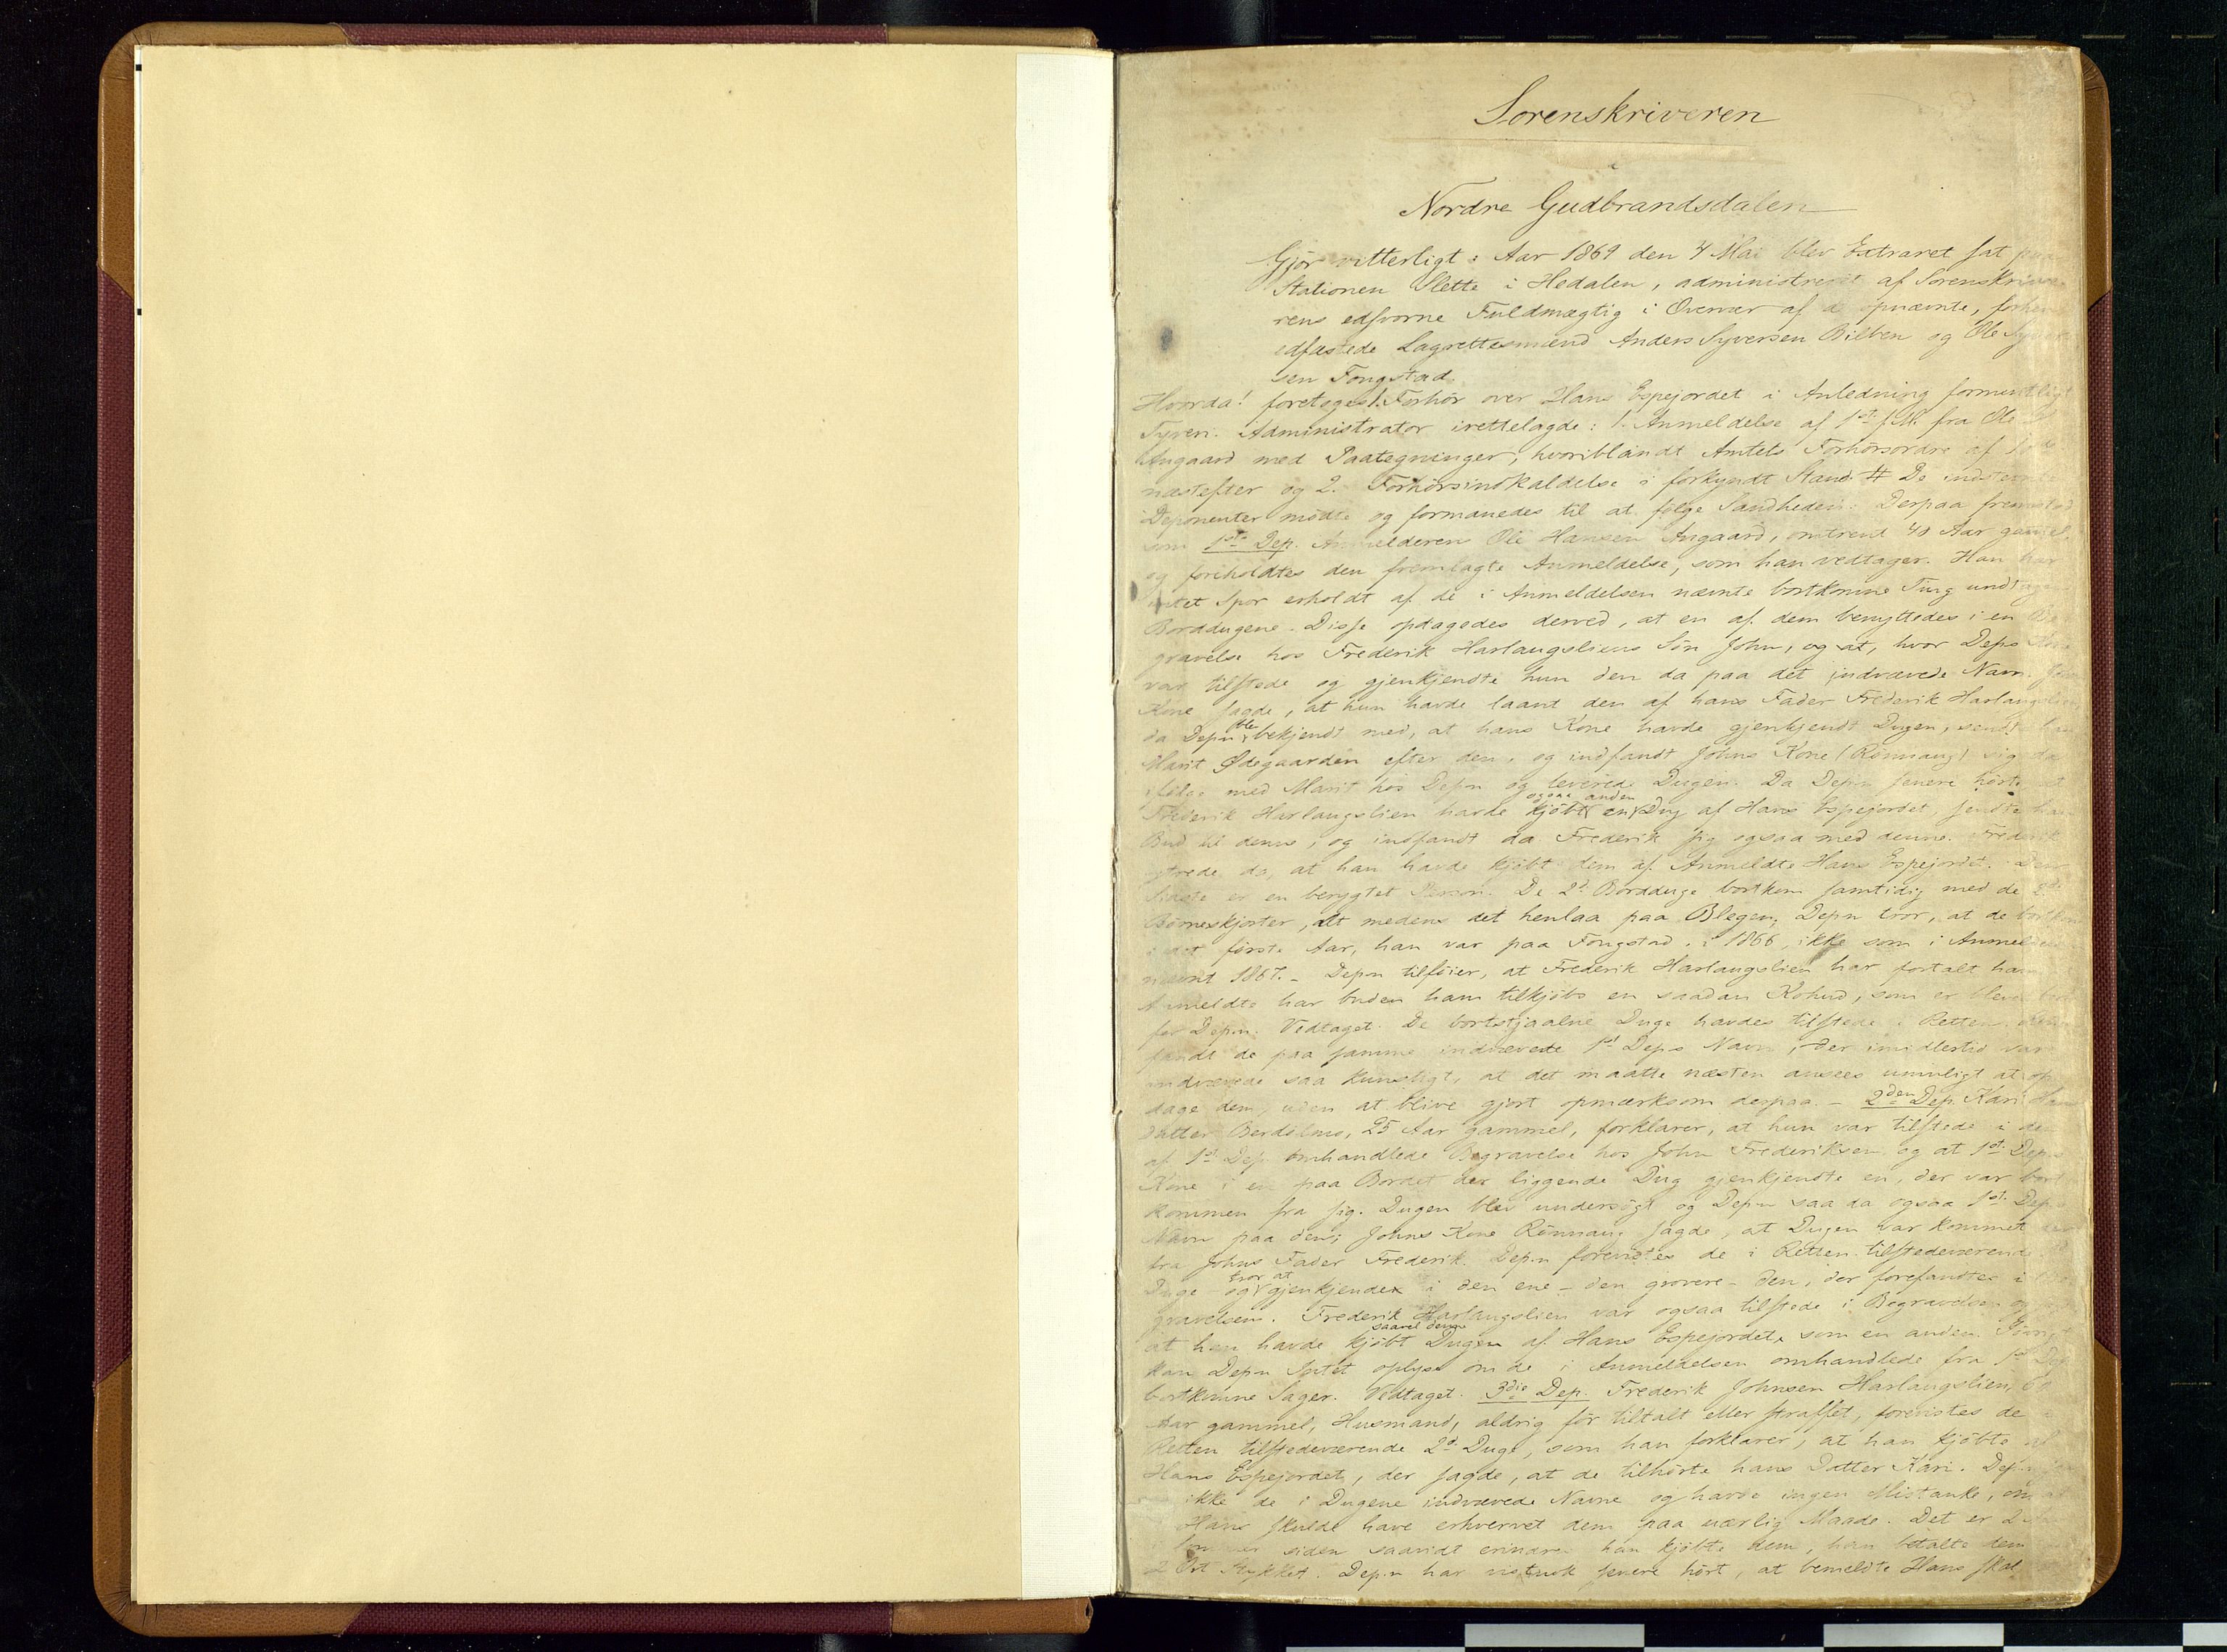 Sorenskriveren
i
Nordre Gudbrandsdalen
Gjør vitterligt: Aar 1869 den 4 Mai blev Extraret sat paa
Stationen Slette i Hedalen, administreret af Sorenskrive-
rens edsvorne Fuldmægtig i Overvær af de opnævnte, forhen
edfæstede Lagrettesmænd Anders Syversen Bilben og Ole Syver
sen Fongstad.
Hvorda! foretoges! Forhør over Hans Espejordet i Anledning formentligt
Tyveri. Administrator irettelagde: 1. Anmeldelse af 1st f.M. fra Ole
Angaard med Paategninger, hvoriblandt Amtets Forhørsordre af
næstefter og 2. Forhørsindkaldelse i forkyndt Stand # De indstevnte
Deponenter mødte og formanedes til at følge Sandheden. Derpaa fremstod
som 1ste Dep. Anmelderen Ole Hansen Angaard, omtrent 40 Aar gammel,
og foreholdtes den fremlagte Anmeldelse, som han vedtager. Han har
intet Spor erholdt af de i Anmeldelsen nævnte bortkomne Ting undtagen
Borddugene. Disse opdagedes derved, at en af dem benyttedes i en Be
gravelse hos Frederik Harlaugsliens Søn John, og at, hvor Deps Kone
var tilstede og gjenkjendte hun den da paa det indvævede Navn. Johns
Kone sagde, at hun havde laant den af hans Fader Frederik Harlaugslien,
da Depn blev bekjendt med, at hans Kone havde gjenkjendt Dugen, sendte han
Marit Ødegaarden efter den, og indfandt Johns Kone (Rønnaug) sig da
ifølge med Marit hos Depn og leverede Dugen. Da Depn senere hørte, at
Frederik Harlaugslien havde kjøbt ogsaa en anden Dug af Hans Espejordet sendte han
Bud til denne, og indfandt da Frederik sig ogsaa med denne. Frederik
ytrede da, at han havde kjøbt dem af Anmeldte Hans Espejordet. Den
sidste er en berygtet Person. De 2de Borddug bortkom samtidig med de 2de
Børneskjorter, alt medens det henlaa paa Blegen, Depn tror, at de bortkom
i det første Aar, han var paa Fongstad, i 1866, ikke som i Anmeldelsen
nævnt 1867. - Depn tilføier, at Frederik Harlaugslien har fortalt ham
Anmeldte har buden ham tilkjøbs en saadan Kohud, som er bleven
for Depn. Vedtaget. De bortstjaalne Duge havdes tilstede i Retten
fandt de paa samme indvævede 1st Deps Navn, der imidlertid var
indvævede saa kunstigt, at det maatte næsten ansees umuligt at op
dage dem, uden at blive gjort opmærksom derpaa. - 2den Dep. Kari Hans
datter Berdølmo, 25 Aar gammel, forklarer, at hun var tilstede i den
af 1st Dep omhandlede Begravelse hos John Frederiksen og at 1st Deps
Kone i en paa Bordet der liggende Dug gjenkjendte en, der var bort
kommen fra sig. Dugen blev undersøgt og Depn saa da ogsaa 1st Deps
Navn paa den; Johns Kone Rønnaug sagde, at Dugen var kommet
fra Johns Fader Frederik. Depn forevistes de i Retten tilstedeværende
Duge - og tror at gjenkjende i den ene - den grovere - den, der forefandtes i Be
gravelsen. Frederik Harlaugslien var ogsaa tilstede i Begravelsen og
at han havde kjøbt saavel denne Dugen af Hans Espejordet, som en anden. Forøvrigt
kan Depn Intet oplyse om de i Anmeldelsen omhandlede fra 1st Dep
bortkomne Sager. Vedtaget. 3die Dep. Frederik Johnsen Harlaugslien,
Aar gammel, Husmand, aldrig før tiltalt eller straffet, forevistes de i
Retten tilstedeværende 2de Duge, som han forklarer, at han kjøbte af
Hans Espejordet, der sagde, at de tilhørte hans Datter Kari. Depn
ikke de i Dugene indvævede Navne og havde ingen Mistanke, om at
Hans skulde have erhvervet dem paa uærlig Maade. Det er 2
siden saavidt erindrer han kjøbte dem, han betalte dem
2 Ort Stykket. Depn har vistnok senere hørt, at bemeldte Hans skal